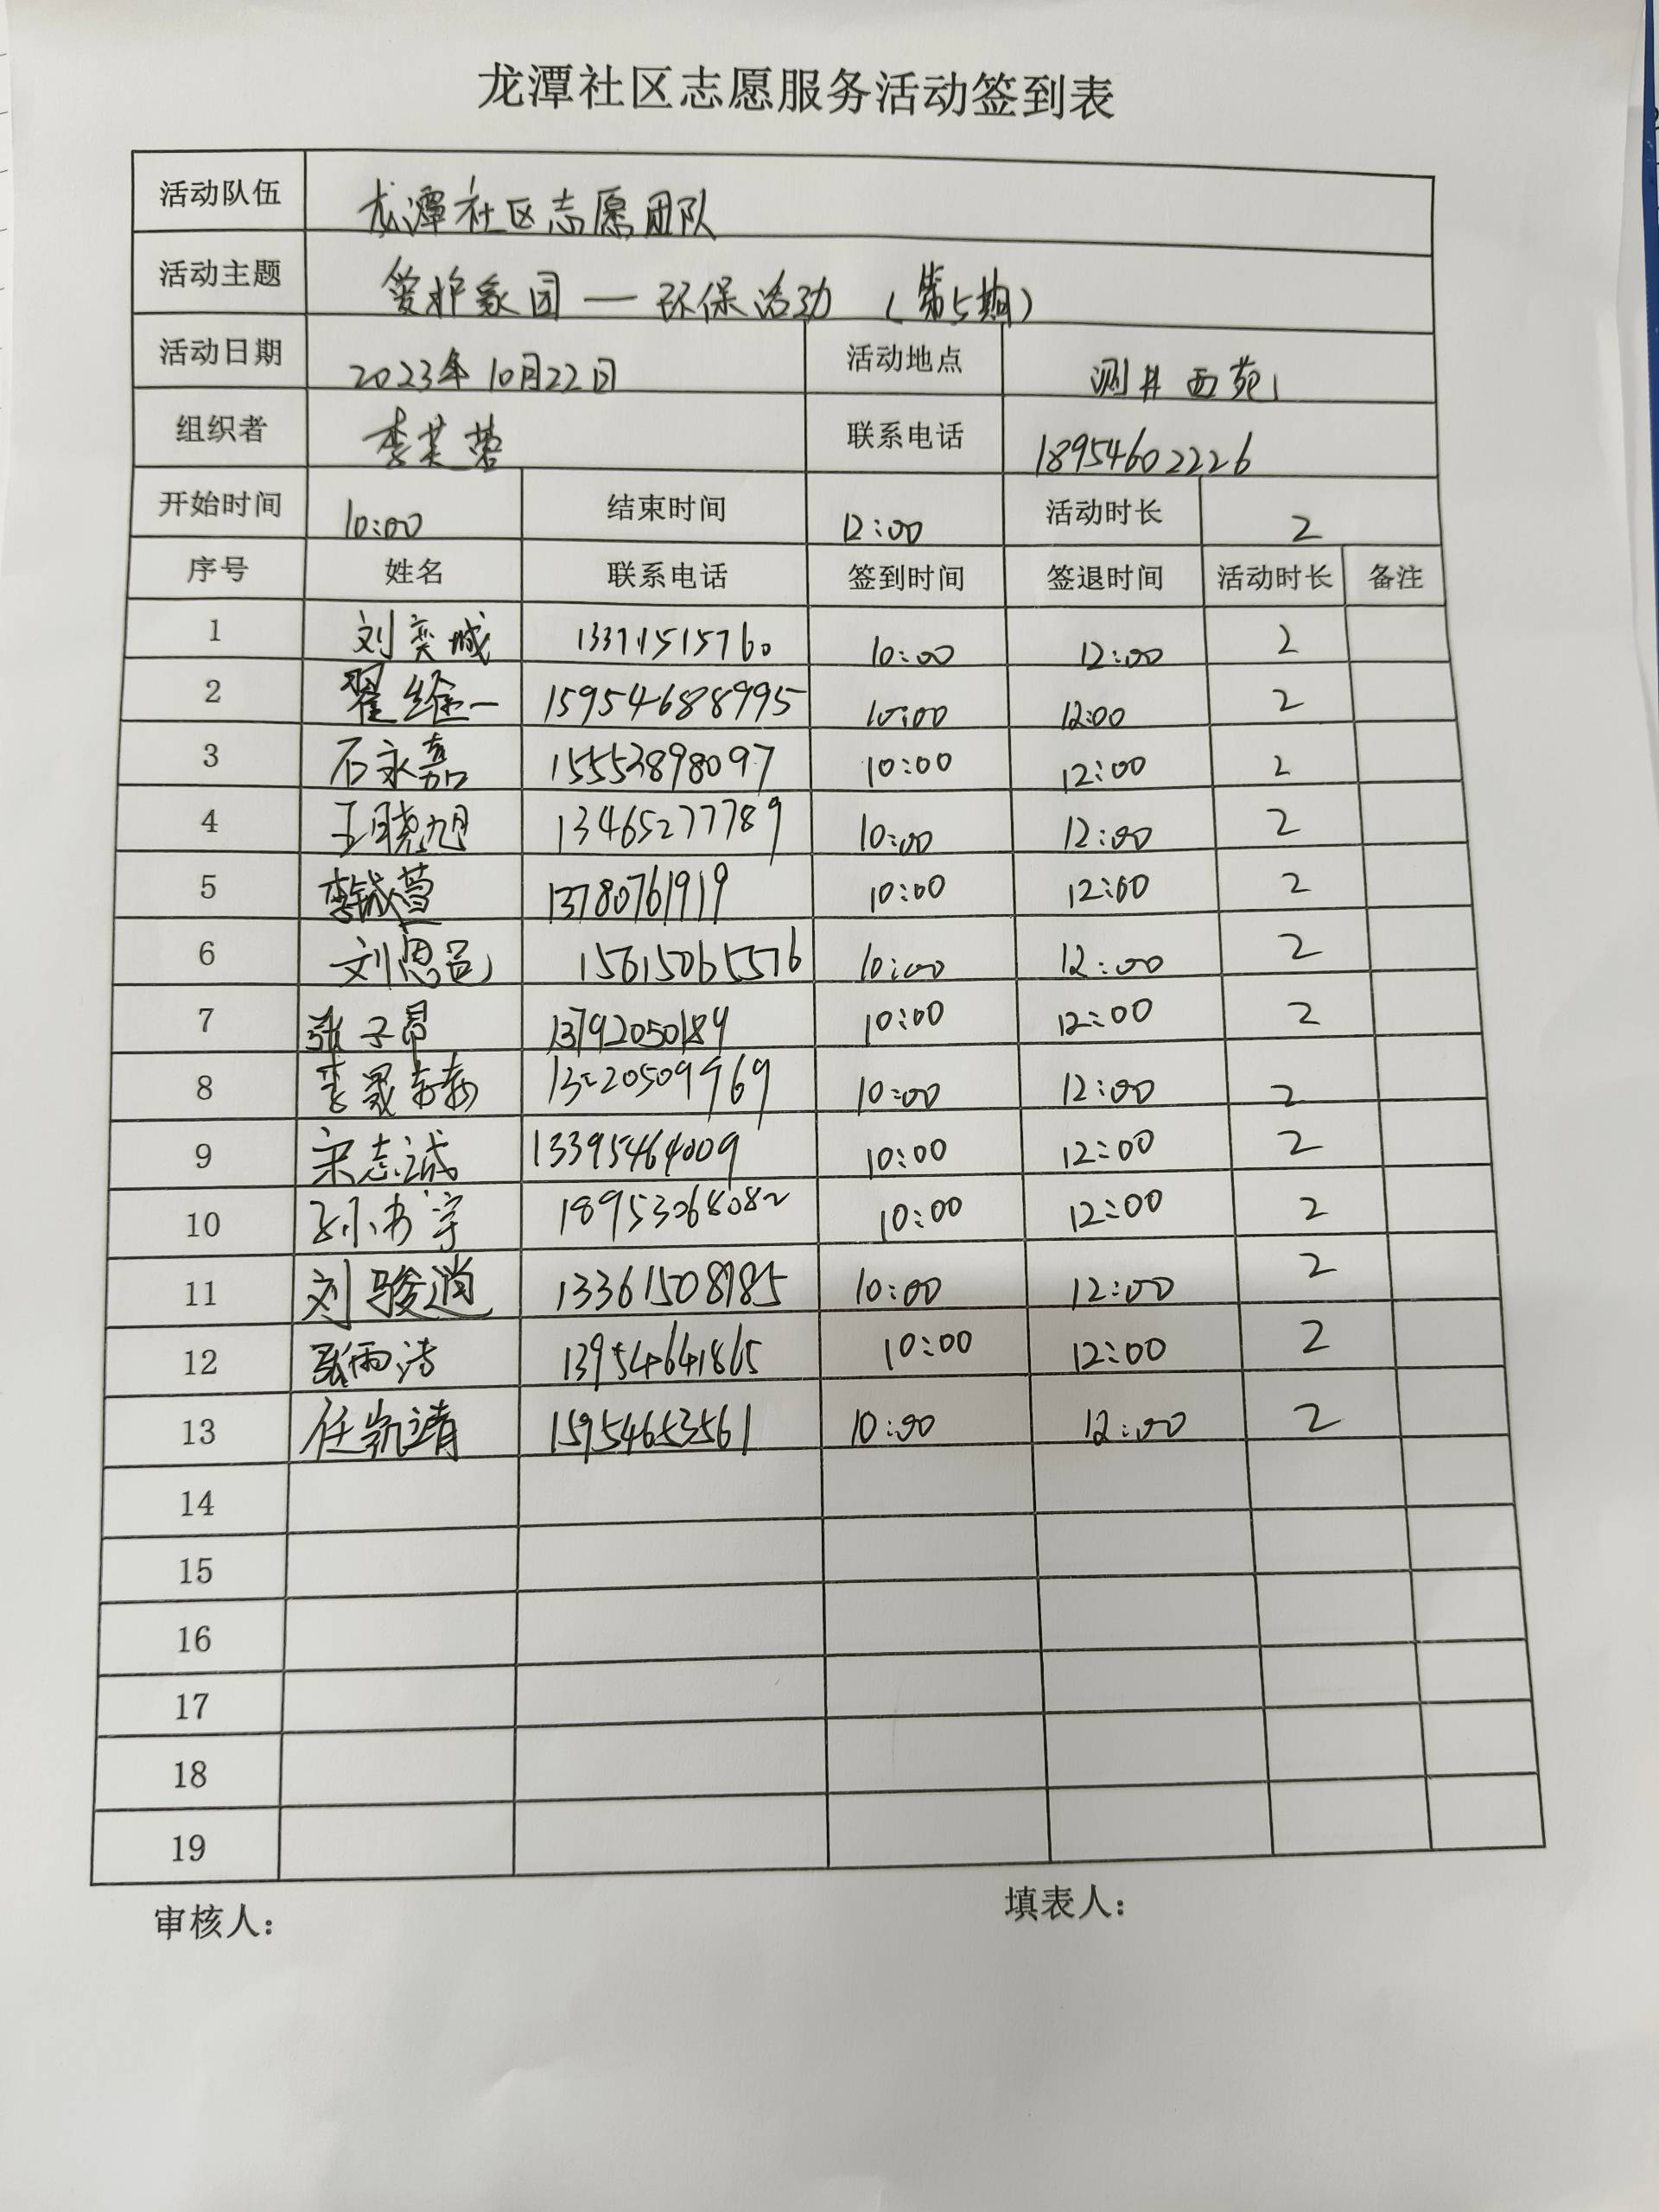 龙潭社区志愿服务活动签到表
活动队伍 龙潭社区志愿团队
活动主题 爱护家园 — 环保活动 (第5期)
活动日期 2023年10月22日 活动地点 测井西苑
组织者 李芙蓉 联系电话 18954602226
开始时间 10:00 结束时间 12:00 活动时长 2
序号 姓名 联系电话 签到时间 签退时间 活动时长 备注
1 刘奕城 13371515760 10:00 12:00 2
2 翟绘一 159546888995 10:00 12:00 2
3 石永嘉 15553898097 10:00 12:00 2
4 王晓旭 13465277789 10:00 12:00 2
5 13780761919 10:00 12:00 2
6 刘恩邑 15615065576 10:00 12:00 2
7 张子昂 13792050189 10:00 12:00 2
8 10:00 12:00 2
9 宋志诚 13395464009 10:00 12:00 2
10 孙书宇 18953068082 10:00 12:00 2
11 刘骏逍 13361508785 10:00 12:00 2
12 张雨涛 13954641865 10:00 12:00 2
13 任凯靖 15954653561 10:00 12:00 2
14
15
16
17
18
19
审核人: 填表人: